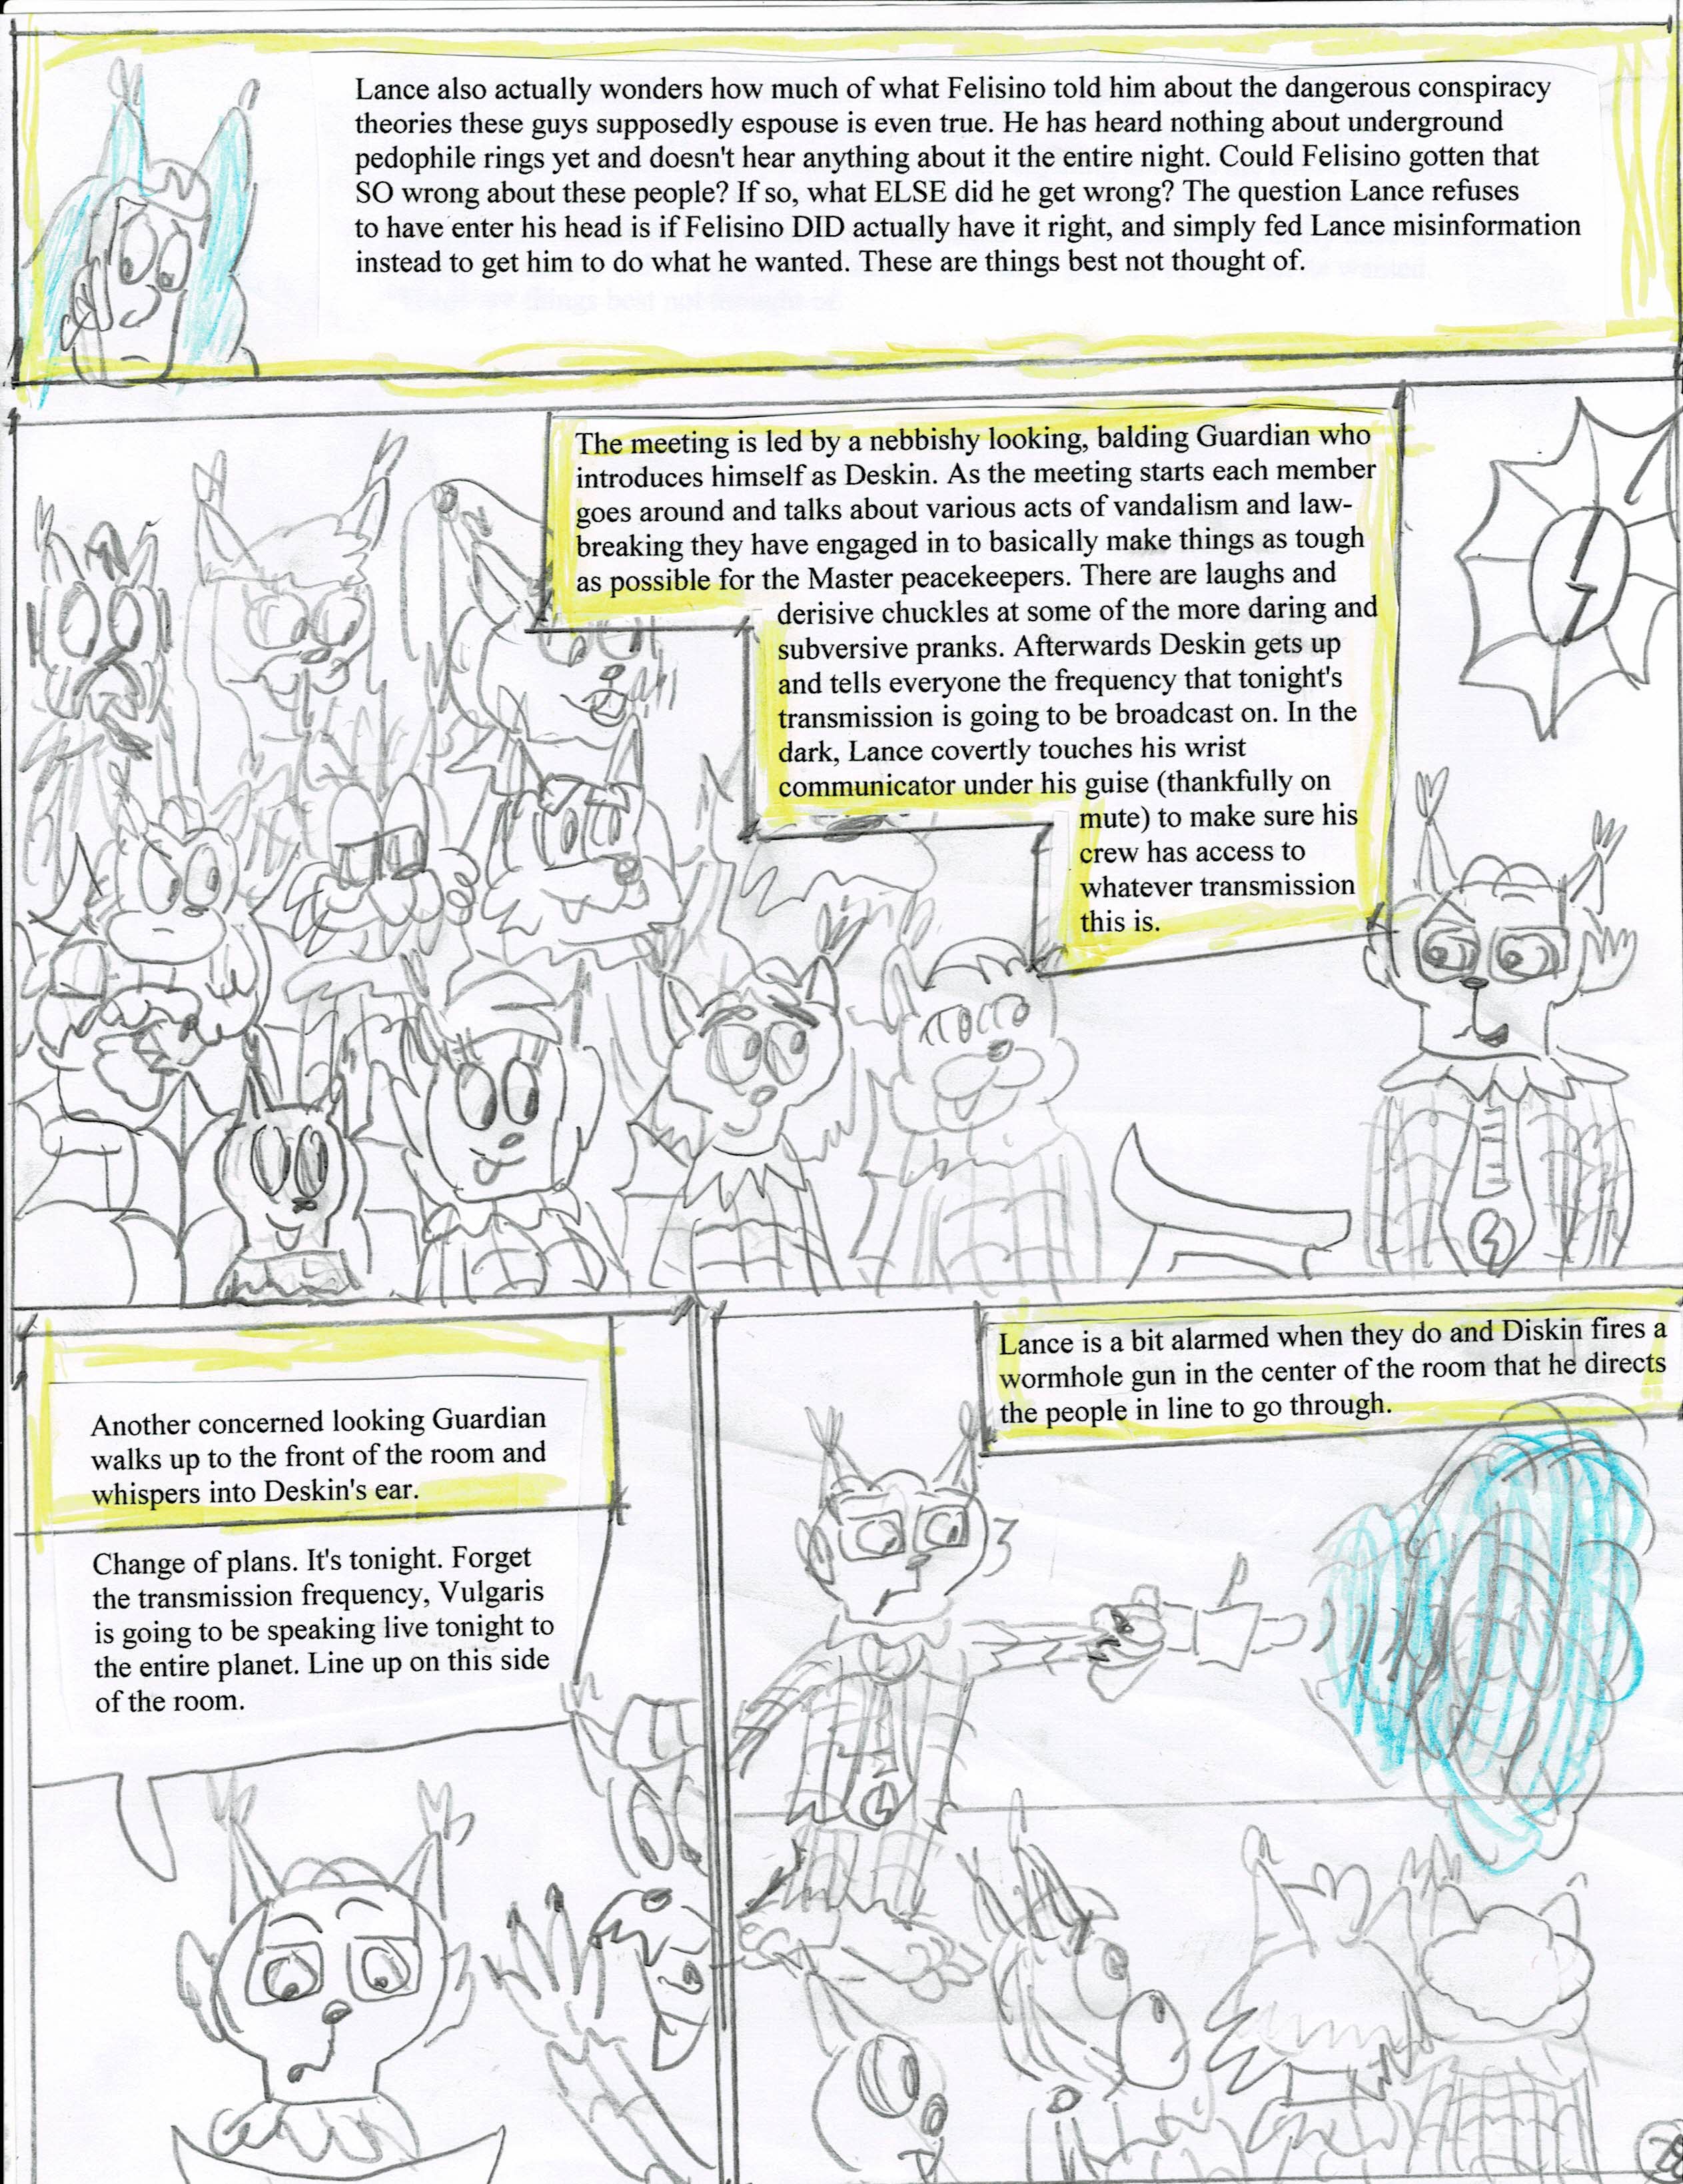 Lance also actually wonders how much of what Felisino told him about the dangerous conspiracy
theories these guys supposedly espouse is even true. He has heard nothing about underground
pedophile rings yet and doesn't hear anything about it the entire night. Could Felisino gotten that
SO wrong about these people? If so, what ELSE did he get wrong? The question Lance refuses
to have enter his head is if Felisino DID actually have it right, and simply fed Lance misinformation
instead to get him to do what he wanted. These are things best not thought of.
The meeting is led by a nebbishy looking, balding Guardian who
introduces himself as Deskin. As the meeting starts each member
goes around and talks about various acts of vandalism and law-
breaking they have engaged in to basically make things as tough
as possible for the Master peacekeepers. There are laughs and
derisive chuckles at some of the more daring and
subversive pranks. Afterwards Deskin gets up
and tells everyone the frequency that tonight's
transmission is going to be broadcast on. In the
dark, Lance covertly touches his wrist
communicator under his guise (thankfully on
mute) to make sure his
crew has access to
whatever transmission
this is.
Another concerned looking Guardian
walks up to the front of the room and
whispers into Deskin's ear.
Change of plans. It's tonight. Forget
the transmission frequency, Vulgaris
is going to be speaking live tonight to
the entire planet. Line up on this side
of the room.
Lance is a bit alarmed when they do and Diskin fires a
wormhole gun in the center of the room that he directs
the people in line to go through.